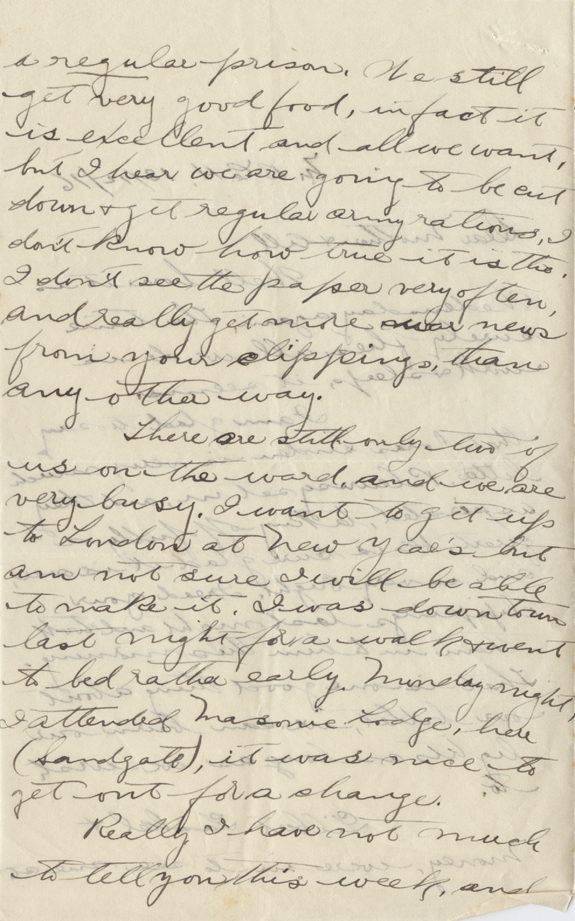 a regular prison. We still
get very good food, in fact it
is excellent and all we want,
but I hear we are going to be cut
down & get regular army rations, I
don't know how true it is tho.
I don't see the paper very often,
and really get more war news
from your clippings, than
any other way.
There are still only two of
us on the ward, and we are
very busy. I want to get up
to London at New Year's but
am not sure I will be able
to make it. I was down town
last night for a walk & went
to bed rather early. Monday night,
I attended Masonic Lodge, here
(Sandgate), it was nice to
get out for a change.
Really I have not much
to tell you this week, and